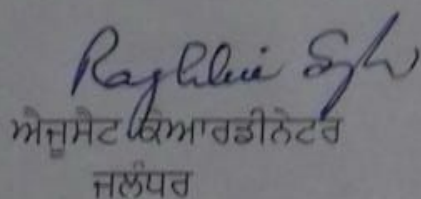 Raghbir Singh
ਐਜੂਸੇਟ ਕੋਆਰਡੀਨੇਟਰ
ਜਲੰਧਰ